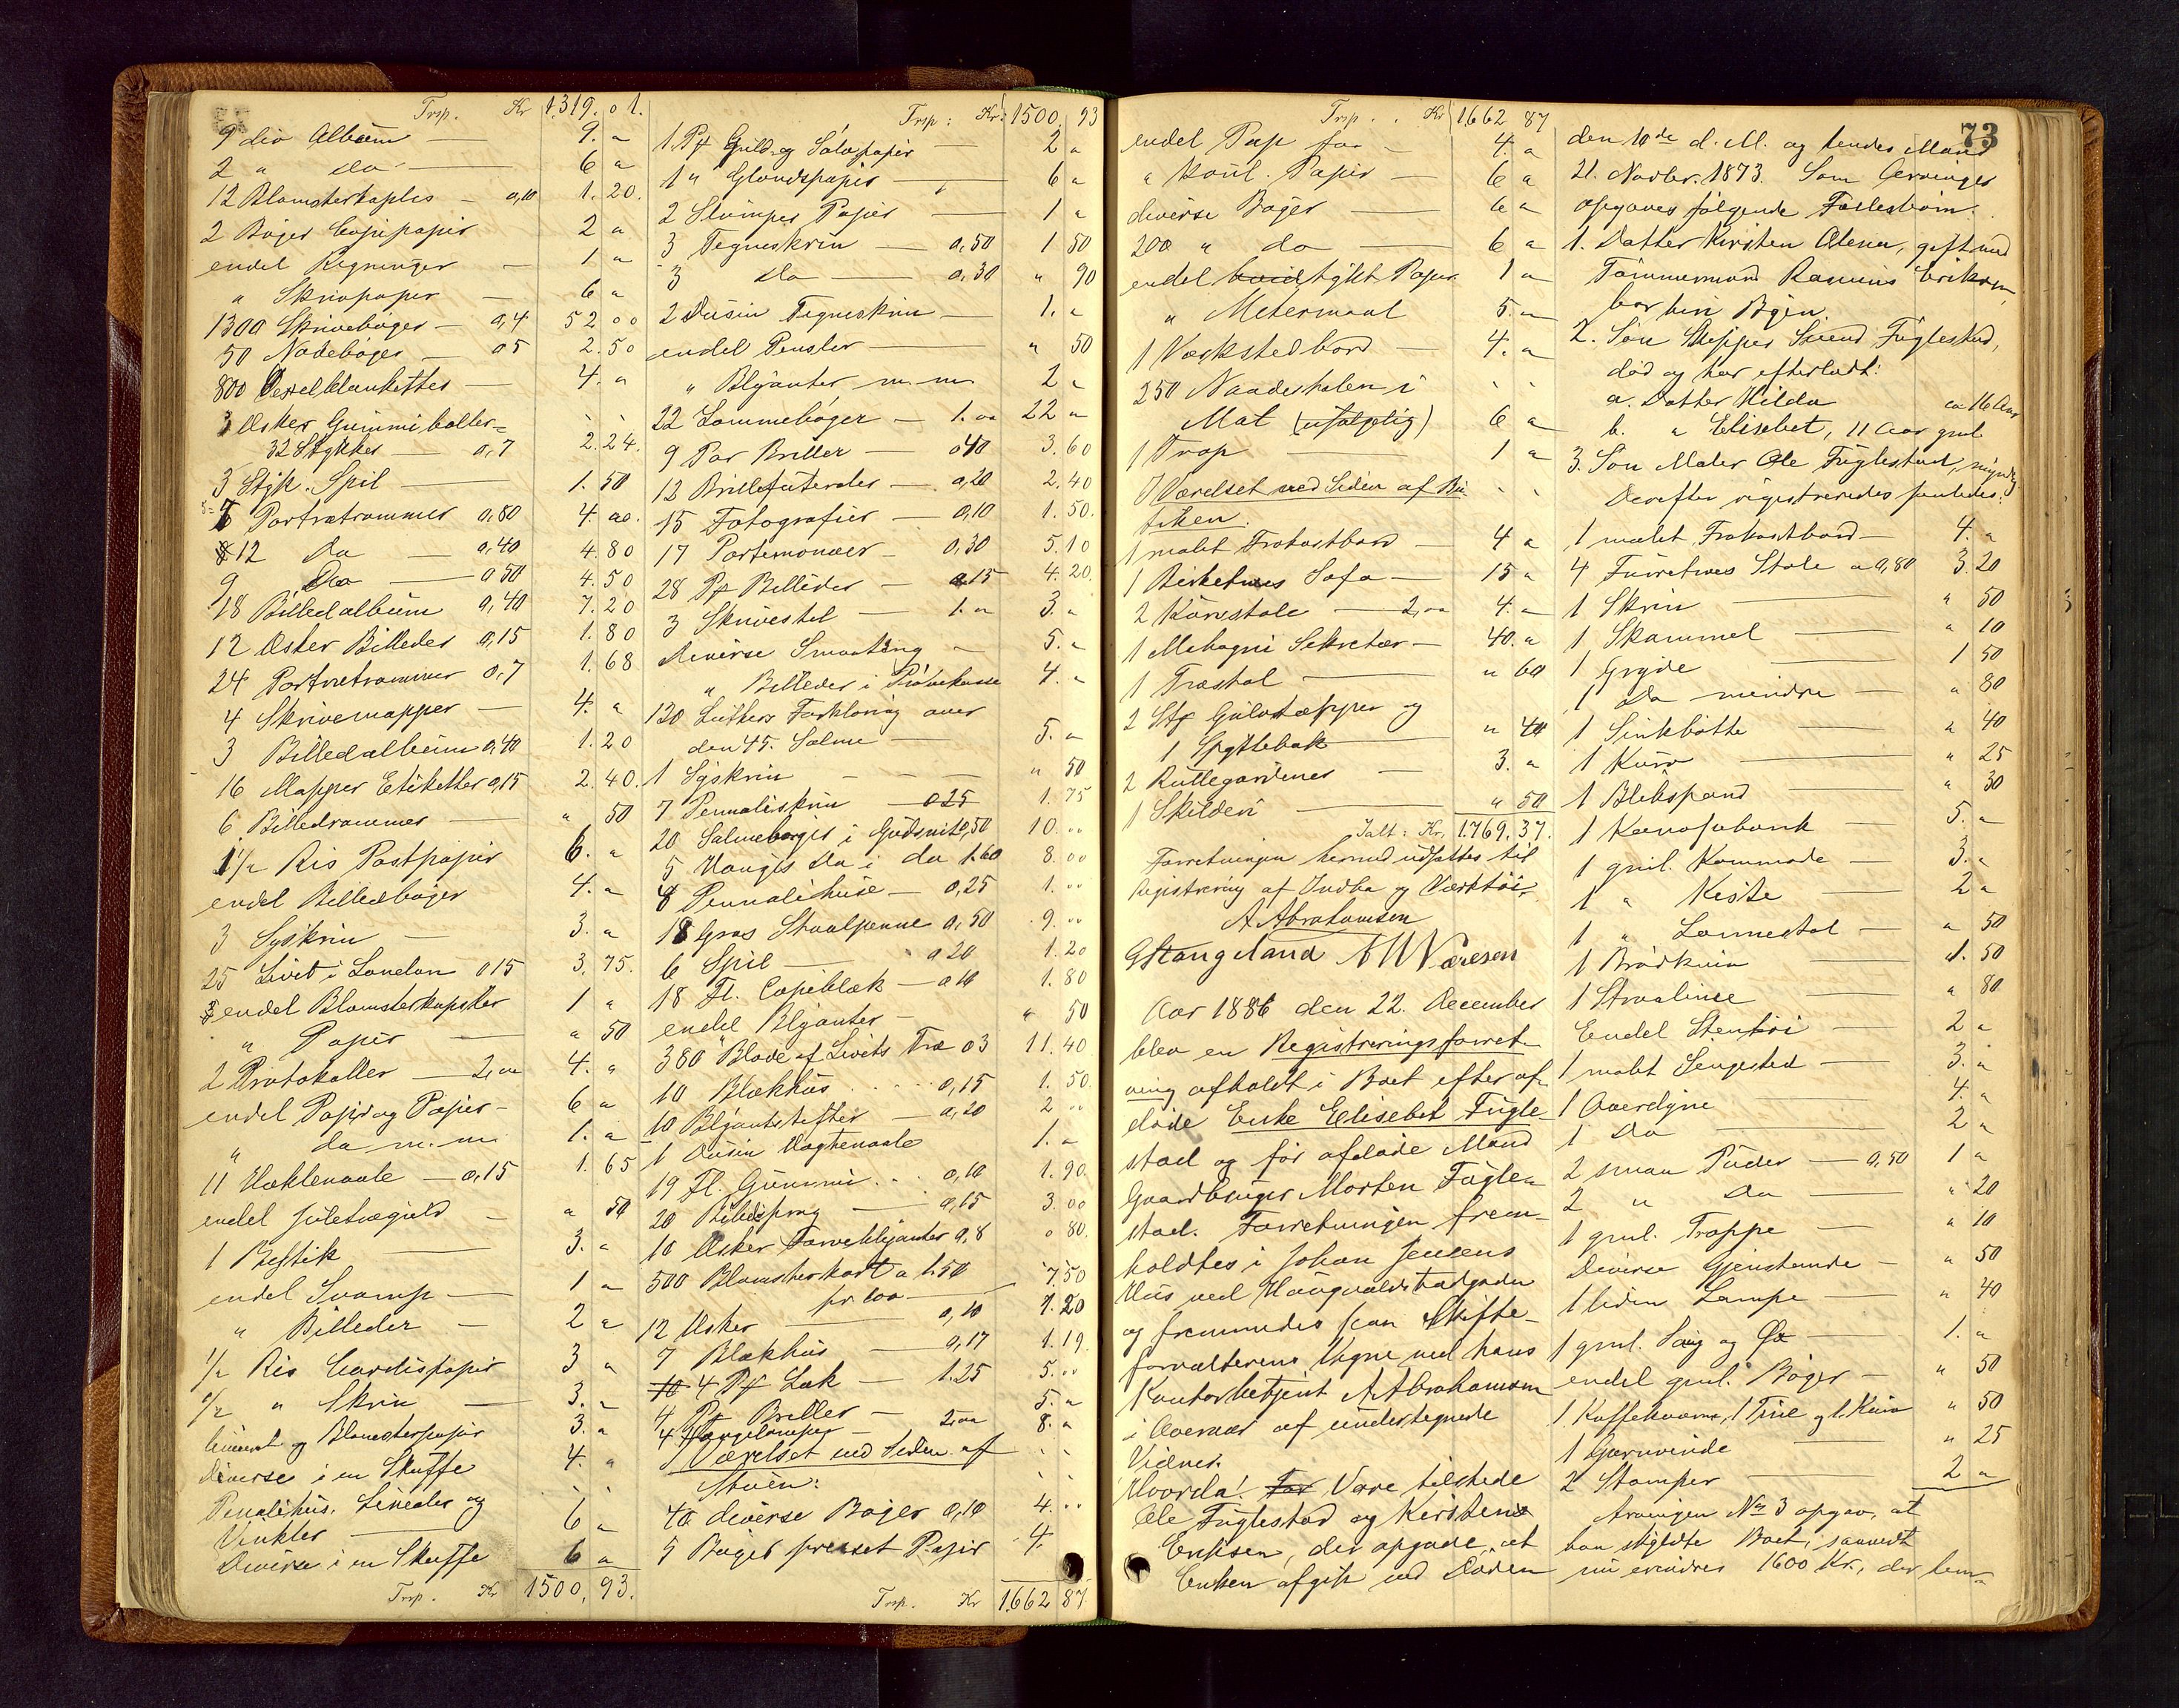 Trsp. Kr 1.319. 01.
9 div Album — 9. "
2 " do — 6 "
12 Blomsterkapsler — 0,10 1.20.
2 Bøger Copipapir 2 "
endel Regninger — 1 "
" Skrivpapir — 6 "
1300 Skrivebøger — 0,4 52 00
50 Nodebøger — 05 2.50
800 Vexelblanketter — 4. "
3 Æsker Gummiboller =
32 Stykker — 0,7 2.24.
3 Styk. Spil — 1.50
5 Portrætrammer 0,80 4. 00.
12 Do — 0,40 4.80
9 Do — 0 50 4.50
18 Billedalbum 0,40 7.20
12 Æsker Billeder 0,15 1.80
24 Portrætrammer 0,7 1.68
4 Skrivemapper — 4. "
3 Billedalbum 0,40 1.20
16 Mapper Etiketter 0,15 2.40.
6 Billedrammer — " 50
1 1/2 Ris Postpapir 6. "
endel Billedbøger 4. "
3 Syskrin — 3. "
25 Livet i London 0 15 3.75.
endel Blomsterkapsler 1 "
" Papir — " 50
2 Protokoller — 2,00 4. "
endel Papir og Papir — 6 "
" do m.m. 1. "
11 Heklenaale — 0,15 1.65
endel Juletræguld — " 50
1 Bestik — 3. "
endel Svamp — 1 "
" Billeder — 2 "
1/2 Ris Cardispapir 3 "
1/2 " Skriv — 3. "
Linieret og Blomsterpapir 3. "
Diverse i en Skuffe 4. "
Penalehus, Linealer og
Vinkler — 6 "
Diverse i en Skuffe 6 "
Trsp. Kr 1500.93.
Trsp: Kr: 1500.93
1 Pk Guld og Sølvpapir — 2 "
1 " Glandspapir — 6 "
2 Stumper Papir — 1 "
3 Tegneskrin — 0,50 1 50
3 Do — 0,30 " 90
2 Dusin Tegneskrin — 1. "
endel Pensler — " 50
" Blyanter m.m 2 "
22 Lommebøger — 1.00 22 "
9 Par Briller — 0 40 3.60
12 Brillefuteraler — 0,20 2.40
15 Fotografier — 0,10 1.50.
17 Portemonæer — 0,30 5.10
28 Pk Billeder — 0.15 4.20.
3 Skrivestel — 1. " 3. "
diverse Smaating — 5. "
" Billeder i Prøvekasse 4. "
120 Luthers Forklaring over
den 45. Salme — 5. "
1 Syskrin — " 50
7 Pennaliskrin — 0 25 1.75
20 Salmebøger i Guldsnit 0,50 10. 00
5 Hauges Do i do 1.60 8. 00
4 Pennalehuse — 0,25 1. 00
18 Gros Staalpenne 0,50 9. 00
6 Spil — 0 20 1.20
18 Fl. Copiblæk — 0 10 1.80
endel Blyanter — " 50
380 Blade af Livets Træ 03 11.40
10 Blækhus 0,15 1.50
10 Blyantstifter — 0,20 2 00
1 Dusin Hæglenaale 1. "
19 Fl. Gummi 0,10 1.90.
20 Billedsprog — 0,15 3.00
10 Æsker Farveblyanter 0,8 0 80.
500 Blomsterkort a 1.50
pr. 100 — 7.50
12 Æsker — 0,10 1.20
7 Blækhus — 0,17 1.19.
4 Pk Lak — 1.25 5. 00
4 Pk Briller — 5. "
4 Hængelamper — 2,00 8. "
I Værelset ved Siden af
Stuen:
40 diverse Bøger 0,10 4. 00
5 Bøger presset Papir 4.
Trsp. Kr 1.662 87
Trsp. Kr 1.662 87
endel Pap for — 4. "
" Koul. Papir — 6 "
diverse Bøger — 6 "
200 " do — 6 "
endel tykt Papir 1 "
" Metermaal 5. "
1 Værkstedbord — 4. "
250 Naadestolen i
Mat (usælgelig) 6 "
1 Trap — 1 "
I Værelset ved Siden af Bu
tiken.
1 malet Frokostbord — 4 "
1 Birketræs Sofa — 15 "
2 Kurvstole — 2,00 4. "
1 Mahogni Sekretær — 40. "
1 Træstol — " 60
2 Stk Gulvtæpper og
1 Spyttebak — " 40
2 Rullegardiner — 3. "
1 Skilderi — " 50
Ialt: Kr. 1.769.37.
Forretningen hermed udsattes til
Registrering af Indbo og Værktøi.
A Abrahamsen
G Stangeland N W Næresen
Aar 1886 den 22. December
blev en Registreringsforret-
ning afholdt i Boet efter af-
døde Enke Elisebet Fugle
stad og før afdøde Mand
Gaardbruger Morten Fugle-
stad. Forretningen frem-
holdtes i Johan Jensens
Hus ved Haugvaldstadgaden
og fremmedes paa Skifte-
forvalterens Vegne ved hans
Kontorbetjent A. Abrahamsen
i Overvær af undertegnede
Vidner.
Hvorda! Vare tilstede
Ole Fuglestad og Kirstene
Eriksen, der opgave, at
Enken afgik ved Døden
73
den 10de d. M. og hendes Mand
21. Novbr. 1873. Som Arvinger
opgaves følgende Fællesbørn.
1. Datter Kirsten Olena, gift med
Tømmermand Rasmus Eriksen,
bor her i Byen.
2. Søn Skipper Svend Fuglestad,
død og har efterladt:
a. Datter Hilda ca 16 Aar
b. " Elisebet, 11 Aar gml
3. Søn Maler Ole Fuglestad, myndig
Derefter registreredes saaledes:
1 malet Frokostbord — 4. "
4 Furretræs Stole a 0,80 3.20
1 Skrin — " 50
1 Skammel — " 10
1 Gryde — 1 50
1 Do mindre — " 80
1 Sinkbøtte — " 40
1 Kurv — " 25
1 Blikspand — " 30
1 Kanapebænk — 5. "
1 gml. Kommode — 3. "
1 " Kiste — 2 "
1 " Lænnestol — " 50
1 Brødkurv — 1. 50
1 Straalinse — " 80
Endel Stentøi — 2 "
1 malet Sengested — 3. "
1 Overdyne — 4. "
1 Do — 2 "
2 smaa Puder — 0,50 1 "
2 " Do — " 20
1 gml. Trappe — " 10
Diverse Gjenstande — " 50
1 liden Lampe — " 40
1 gml. Saug og Øx — 1. "
endel gml. Bøger — " 50
1 Kaffekværn, 1 Tine og 1 Kurv " 50
1 Garnvinde — " 25
2 Stamper — 2 "
Arvingen No 3 opgav, at
han skyldte Boet, saavidt
nu erindres 1600 Kr., der hen-